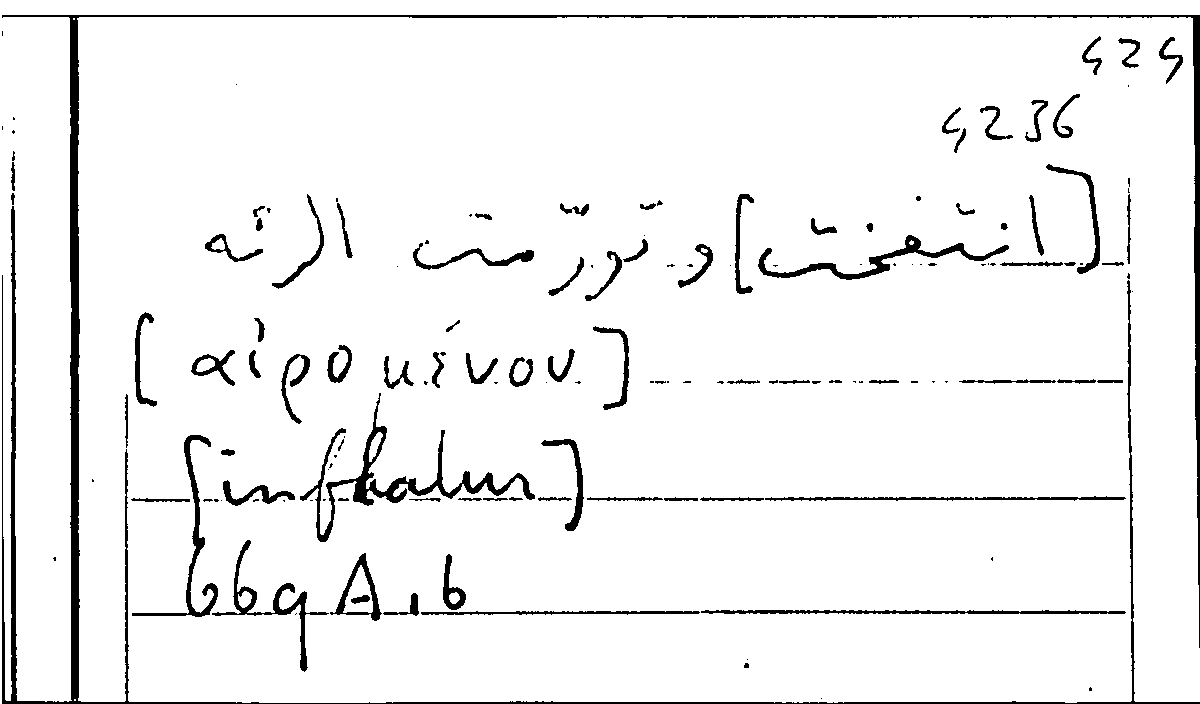 424
4236
[انتفخت] وتورّمت الرئه
[αἰρομένου]
[infhalur]
669 A, 6